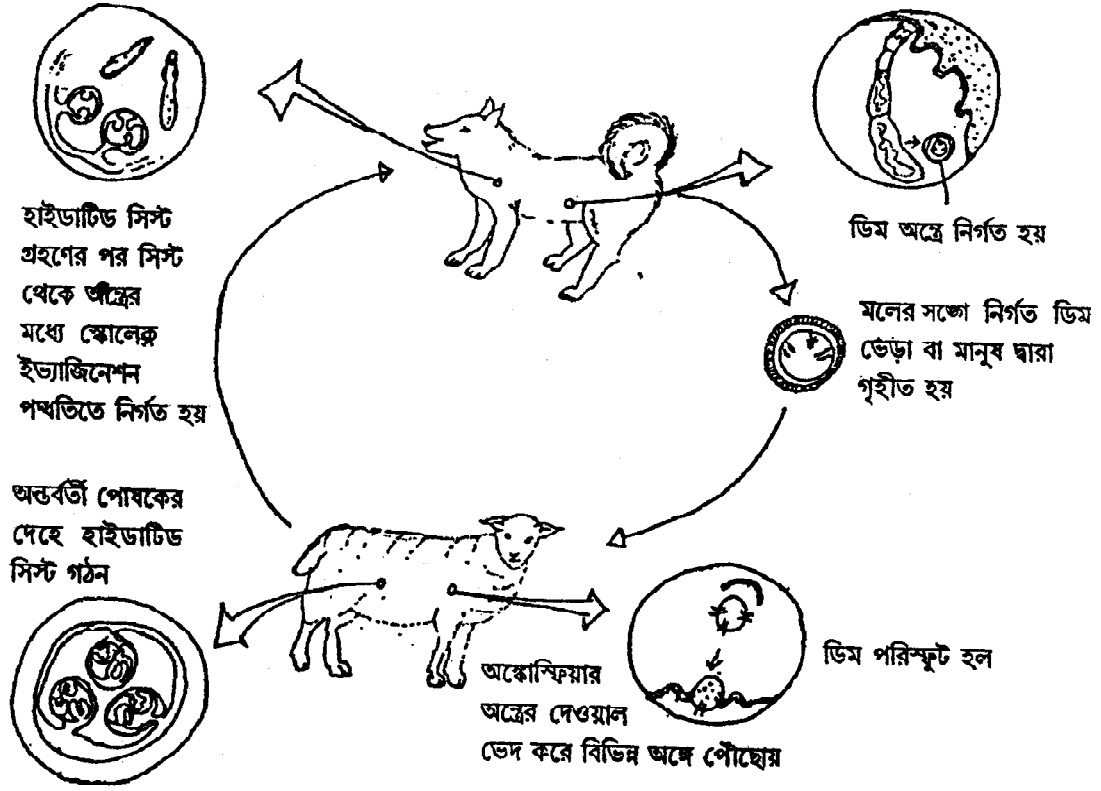 হাইডাটিড সিস্ট
গ্রহণের পর সিস্ট
থেকে অন্ত্রের
মধ্যে স্কোলেক্স
ইভ্যাজিনেশন
পদ্ধতিতে নির্গত হয়
ডিম অন্ত্রে নির্গত হয়
মলের সঙ্গে নির্গত ডিম
ভেড়া বা মানুষ দ্বারা
গৃহীত হয়
অন্তর্বর্তী পোষকের
দেহে হাইডাটিড
সিস্ট গঠন
ডিম পরিস্ফুট হল
অঙ্কোস্ফিয়ার
অন্ত্রের দেওয়াল
ভেদ করে বিভিন্ন অঙ্গে পৌছোয়